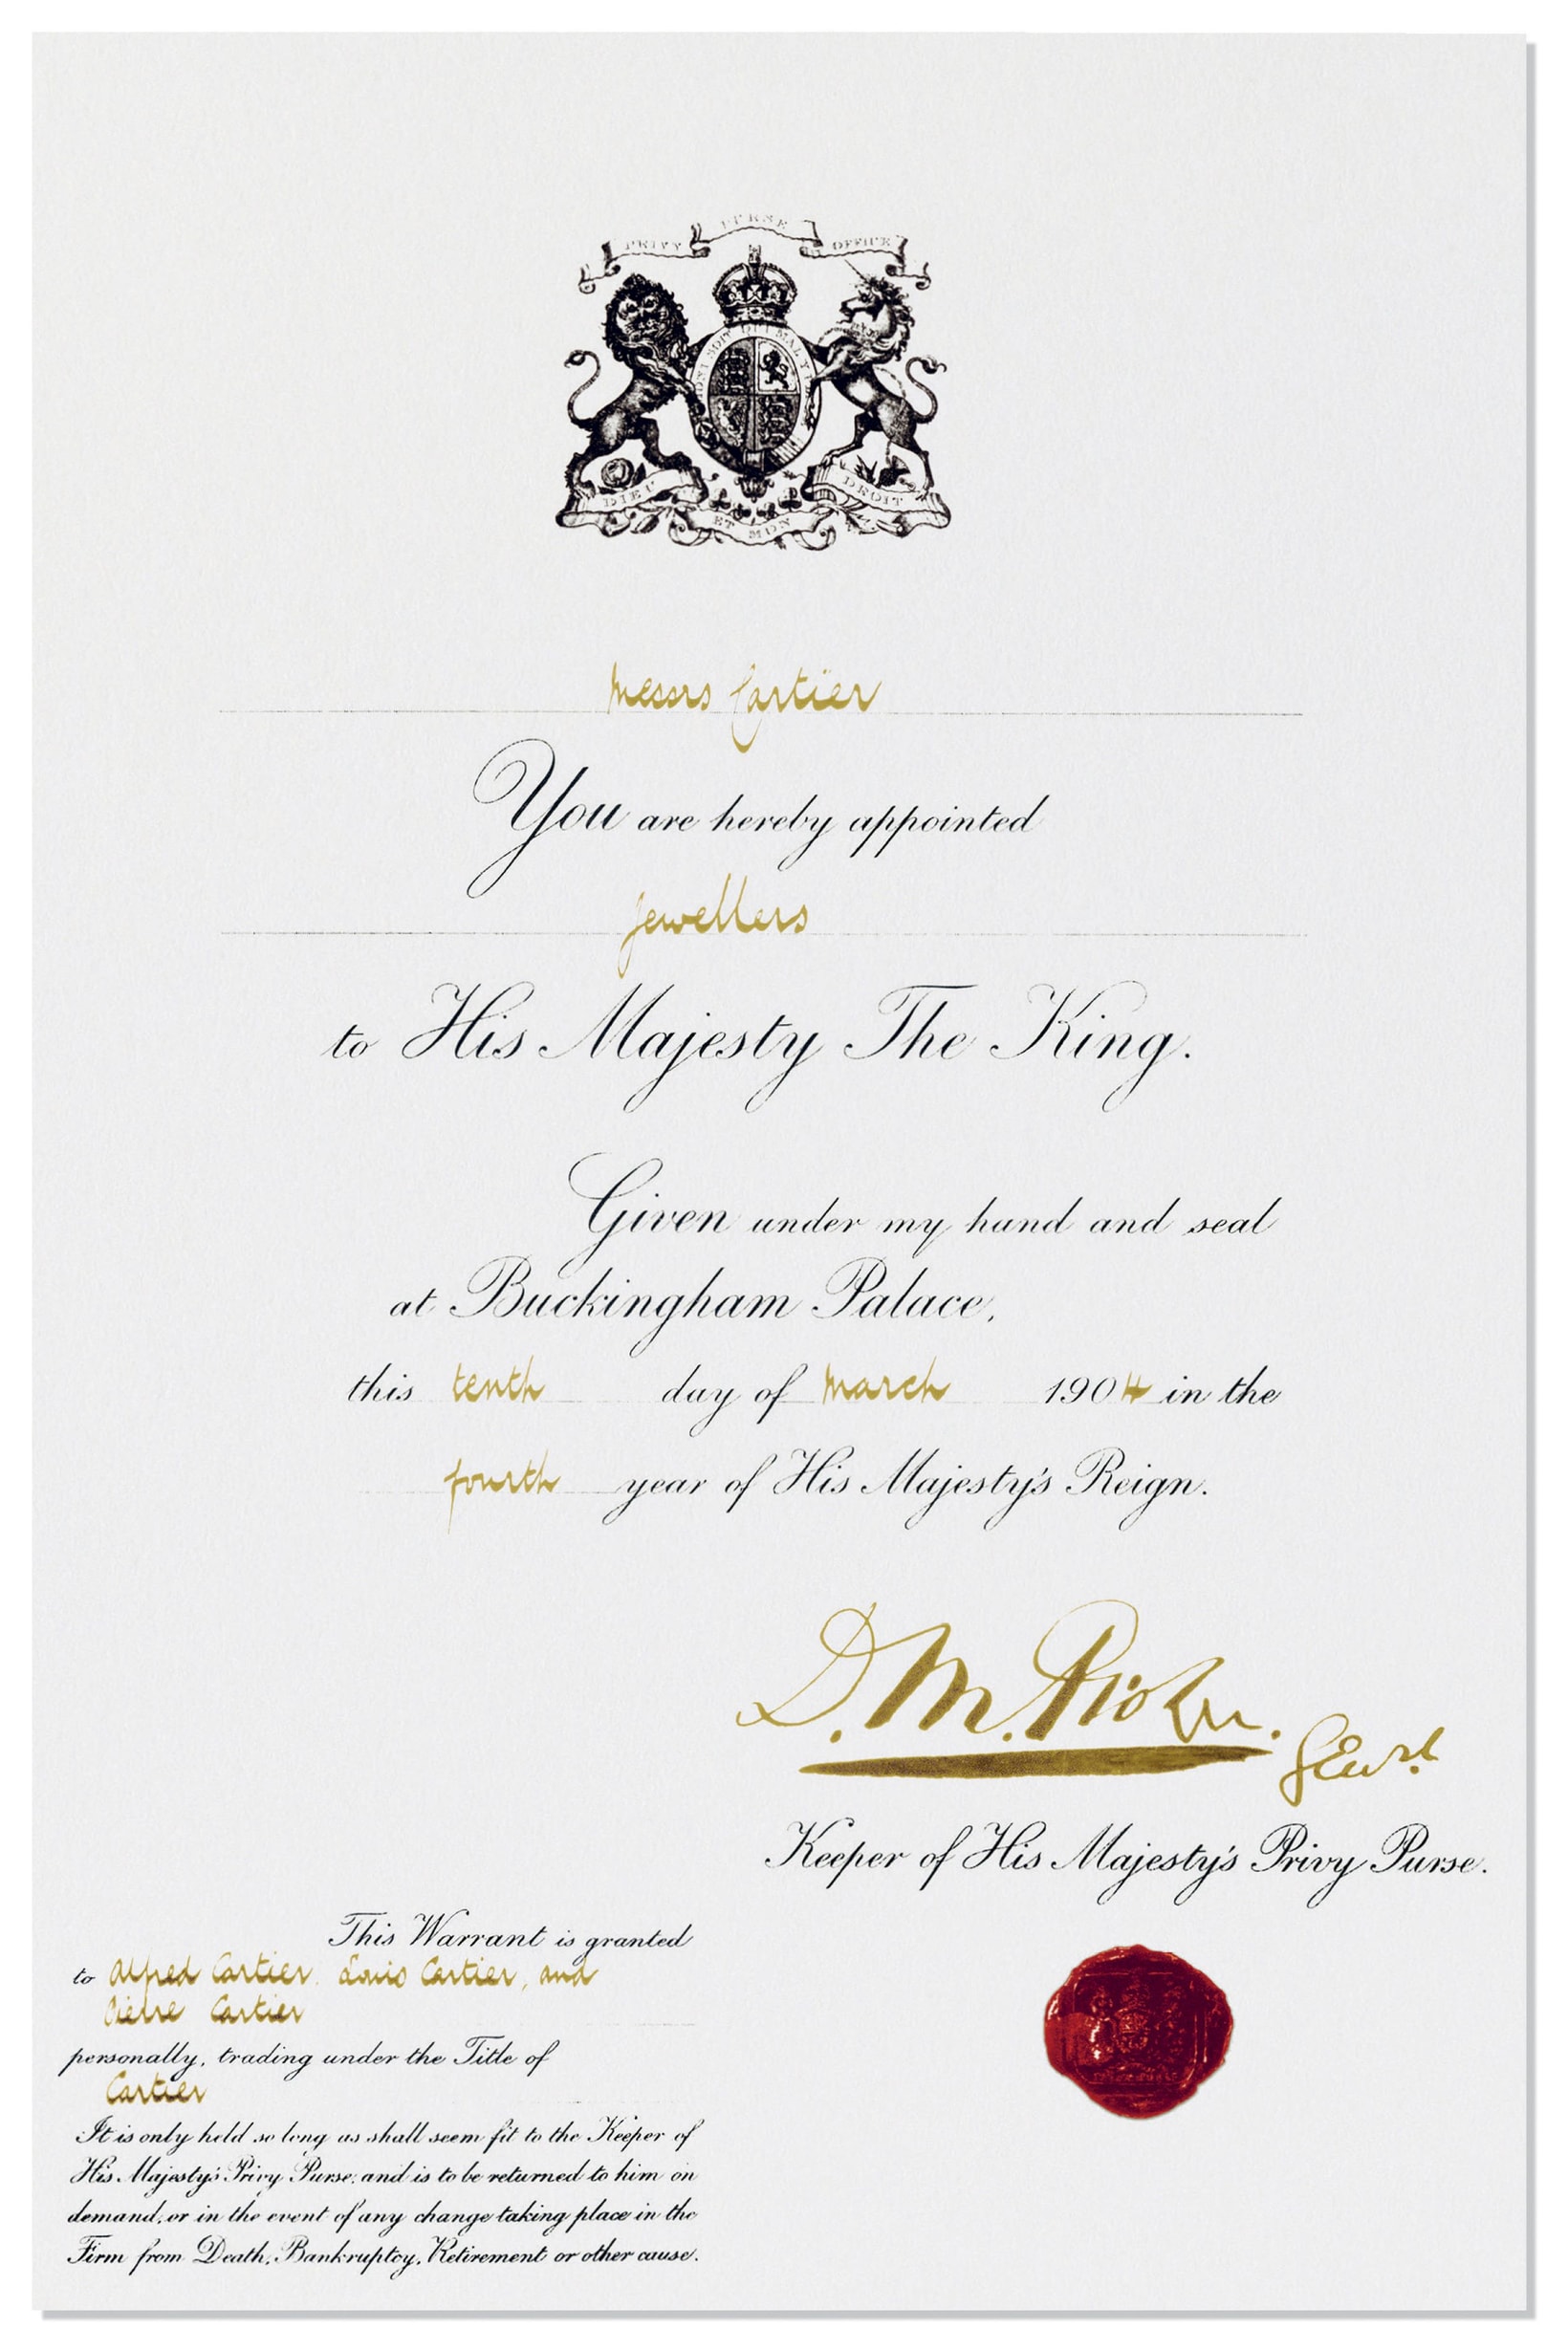 PRIVY PURSE OFFICE
HONI SOIT QUI MAL Y
DIEU ET MON DROIT
Messrs Cartier
You are hereby appointed
Jewellers
to His Majesty The King.
Given under my hand and seal
at Buckingham Palace,
this tenth day of March 1904 in the
fourth year of His Majesty's Reign.
D. M. Probyn.
Keeper of His Majesty's Privy Purse.
This Warrant is granted
to Alfred Cartier. Louis Cartier, and
Pierre Cartier
personally, trading under the Title of
Cartier
It is only held so long as shall seem fit to the Keeper of
His Majesty's Privy Purse: and is to be returned to him on
demand, or in the event of any change taking place in the
Firm from Death, Bankruptcy, Retirement or other cause.